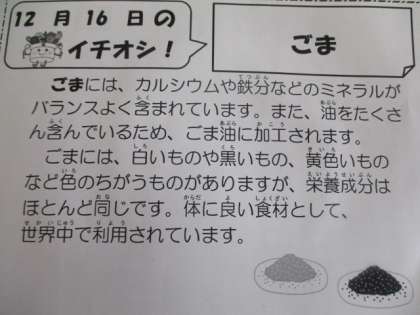 12月16日の
イチオシ！
ごま
ごまには、カルシウムや鉄分などのミネラルが
バランスよく含まれています。また、油をたくさ
ん含んでいるため、ごま油に加工されます。
ごまには、白いものや黒いもの、黄色いもの
など色のちがうものがありますが、栄養成分は
ほとんど同じです。体に良い食材として、
世界中で利用されています。